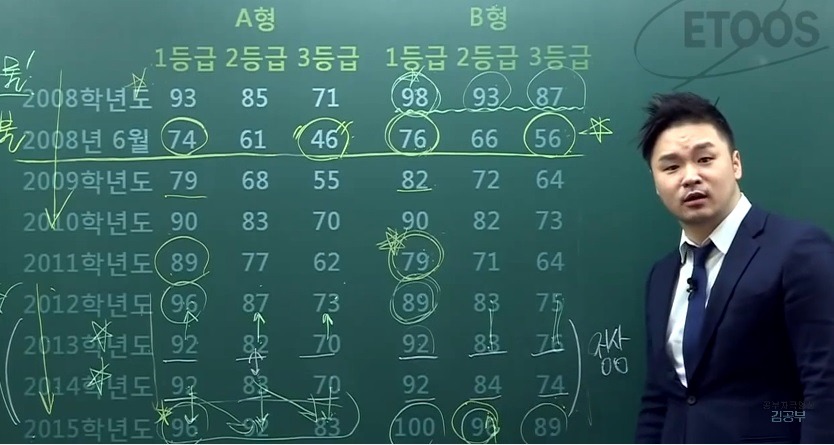 ETOOS
A형 B형
1등급 2등급 3등급 1등급 2등급 3등급
2008학년도 93 85 71 98 93 87
2008년 6월 74 61 46 76 66 56
2009학년도 79 68 55 82 72 64
2010학년도 90 83 70 90 82 73
2011학년도 89 77 62 79 71 64
2012학년도 96 87 73 89 83 75
2013학년도 92 82 70 92 83 76
2014학년도 92 83 70 92 84 74
2015학년도 96 92 83 100 96 89
김공부